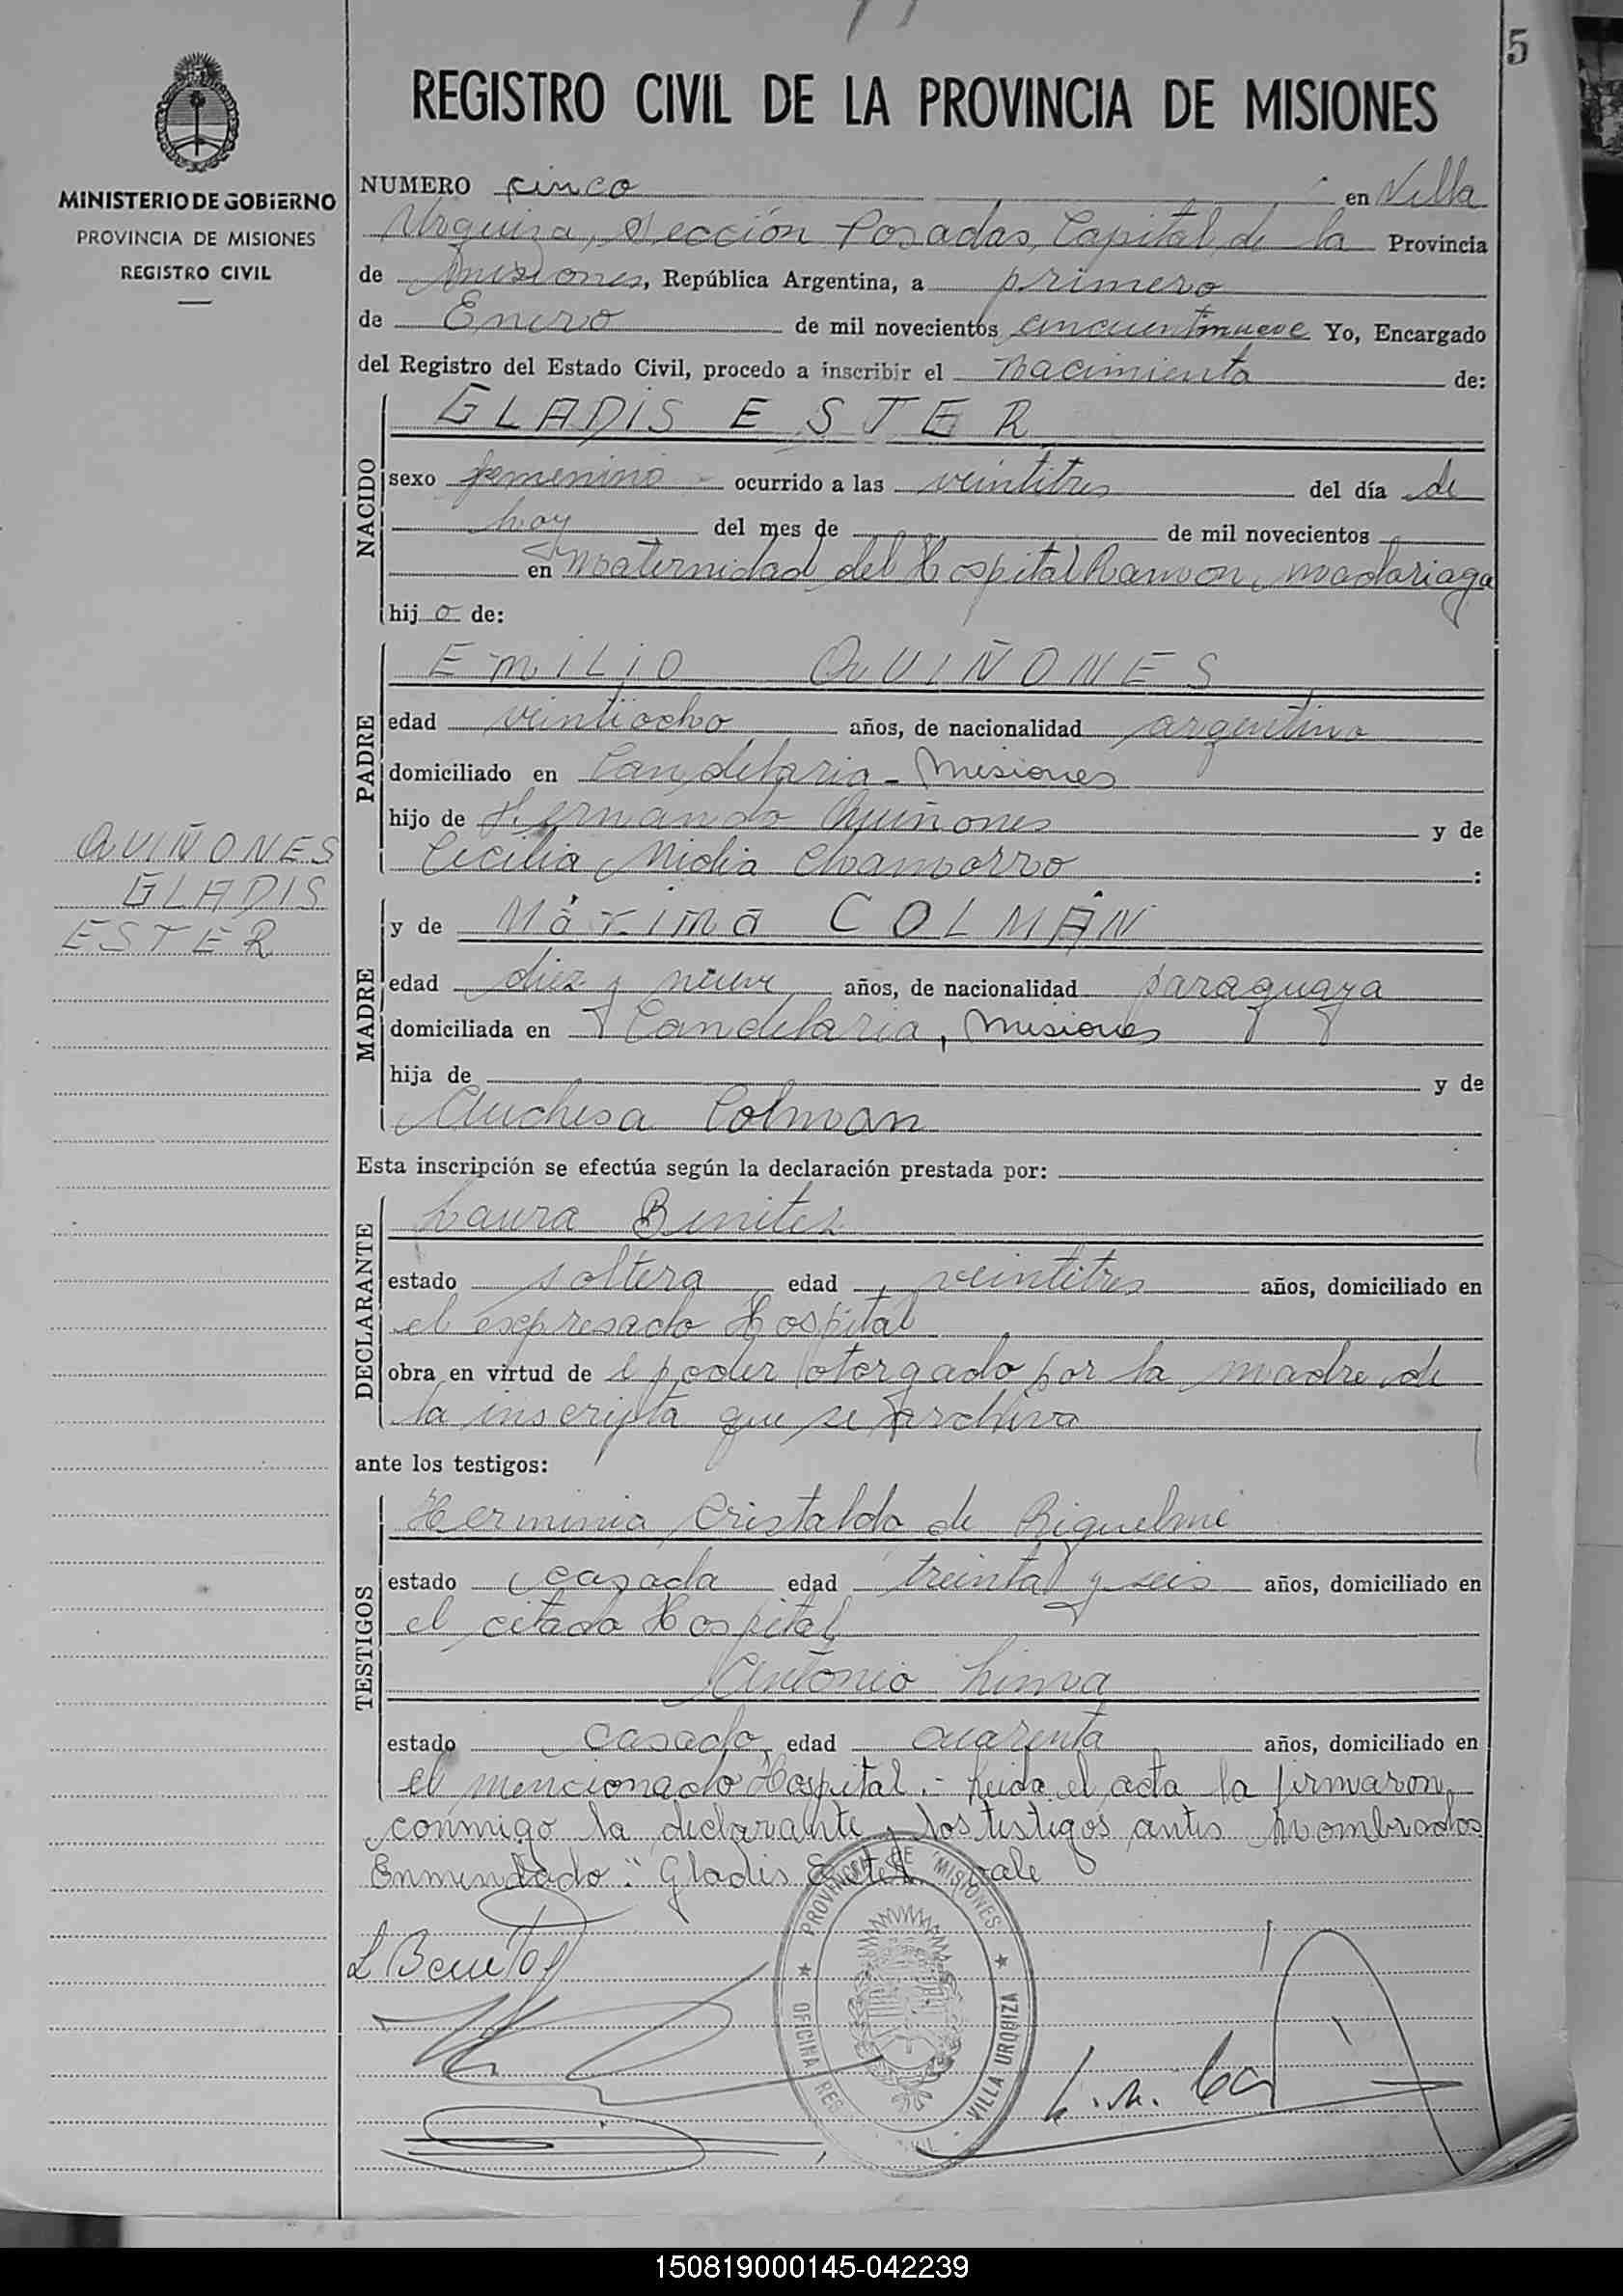 5
REGISTRO CIVIL DE LA PROVINCIA DE MISIONES
MINISTERIO DE GOBIERNO
PROVINCIA DE MISIONES
REGISTRO CIVIL
NUMERO cinco en Villa
Urquiza, Sección Posadas, Capital de la Provincia
de Misiones, República Argentina, a primero
de Enero de mil novecientos cincuentinueve Yo, Encargado
del Registro del Estado Civil, procedo a inscribir el nacimiento de:
NACIDO
GLADIS ESTER
sexo femenino ocurrido a las veintitres del día de
hoy del mes de de mil novecientos
en Maternidad del Hospital Ramon Madariaga
hijo de:
PADRE
EMILIO QUIÑONES
edad veintiocho años, de nacionalidad argentina
domiciliado en Candelaria - Misiones
hijo de Hernando Quiñones y de
Cecilia Nidia Chamorro :
QUIÑONES
GLADIS
ESTER
MADRE
y de Máxima COLMÁN
edad diez y nueve años, de nacionalidad paraguaya
domiciliada en Candelaria, Misiones
hija de y de
Colman
Esta inscripción se efectúa según la declaración prestada por:
DECLARANTE
Laura Benitez
estado soltera edad veintitres años, domiciliado en
el expresado Hospital
obra en virtud de l poder otorgado por la madre de
la inscripta que se archiva
ante los testigos:
TESTIGOS
Herminia Cristaldo de Riquelme
estado casada edad treinta y seis años, domiciliado en
el citado Hospital
Antonio Lima
estado casado edad cuarenta años, domiciliado en
el mencionado Hospital.- Leida el acta la firmaron
conmigo la declarante y los testigos antes nombrados
Enmendado: "Gladis Ester vale
PROVINCIA DE MISIONES
OFICINA REG. CIVIL - VILLA URQUIZA
L Benitez
150819000145-042239